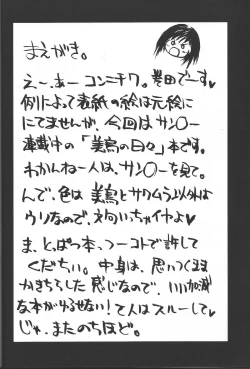 まえがき。
えー、あー コンニチワ。豊田でーす♥
例によって表紙の絵は元絵に
にてませんが、今回はサン〇ー
連載中の「美鳥の日々」本です。
わかんねー人は、サン〇ーを見て。
んで、色は 美鳥とサクムラ以外は
ウソなので、え向いちゃイヤよ♥
ま、とっぱつ本、つーコトで許して
くだちい。中身は、思いつくまま
かきちらした感じなので、いい加減
な本がゆるせない!て人はスルーして♥
じゃ、またのちほど。